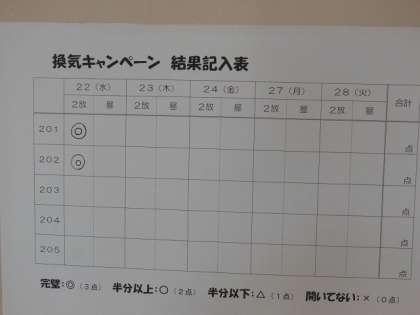 換気キャンペーン 結果記入表
22（水） 23（木） 24（金） 27（月） 28（火） 合計
2放 昼 2放 昼 2放 昼 2放 昼 2放 昼
201 ◎ 点
202 ◎ 点
203 点
204 点
205 点
完璧：◎（3点） 半分以上：○（2点） 半分以下：△（1点） 開いてない：×（0点）